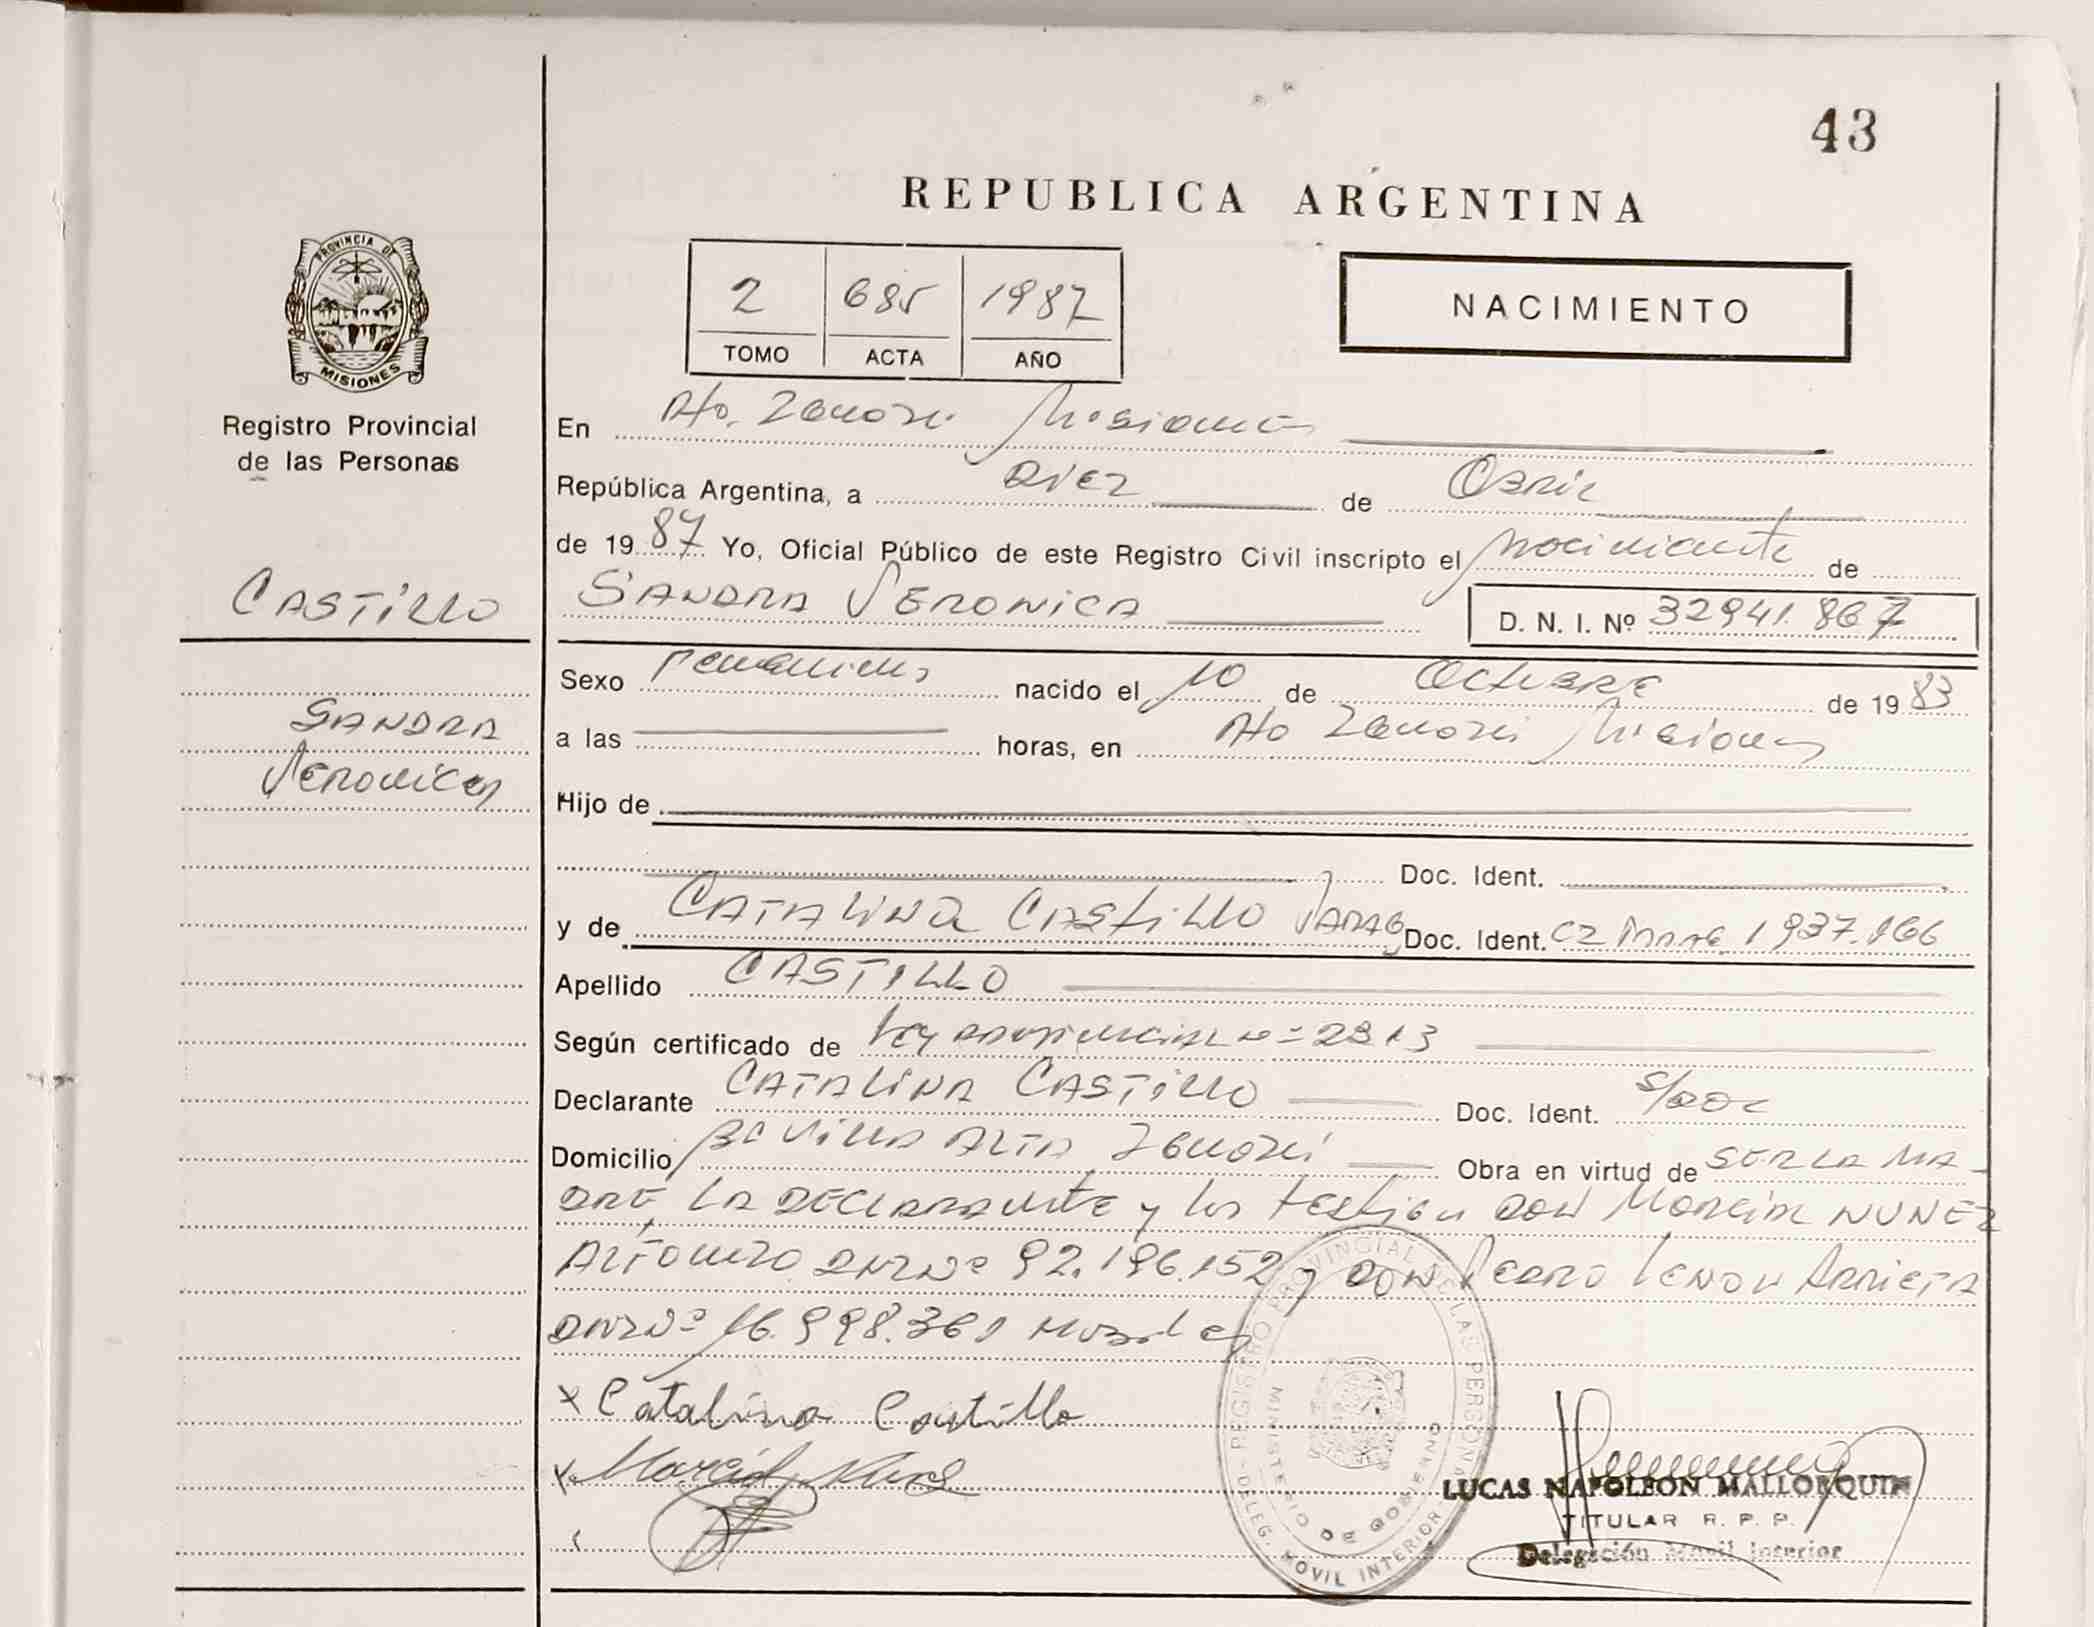 43
REPUBLICA ARGENTINA
2 685 1987
TOMO ACTA AÑO
NACIMIENTO
PROVINCIA DE
MISIONES
Registro Provincial
de las Personas
CASTILLO
SANDRA
VERONICA
En Ato. Zamora Misiones
República Argentina, a DIEZ de ABRIL
de 1987 Yo, Oficial Público de este Registro Civil inscripto el nacimiento de
SANDRA VERONICA D. N. I. Nº 32941.867
Sexo Femenino nacido el 10 de OCTUBRE de 1983
a las horas, en Ato Zamora Misiones
Hijo de
Doc. Ident.
y de CATALINA CASTILLO Doc. Ident. CZ 1937.166
Apellido CASTILLO
Según certificado de Ley PROVINCIAL Nº = 2313
Declarante CATALINA CASTILLO Doc. Ident. S/DOC
Domicilio VILLA ALTA Obra en virtud de SER LA MA-
DRE, LA DECLARANTE y los testigos DON MARCIAL NUNEZ
DNI Nº 92.196.152 y DON PEDRO ARRIETA
DNI Nº 16.998.361
x Catalina Castillo
x Marcial
REGISTRO PROVINCIAL DE LAS PERSONAS
MINISTERIO DE GOBIERNO
DELEG. MOVIL INTERIOR
LUCAS NAPOLEON MALLORQUIN
TITULAR R. P. P.
Delegación Movil Interior